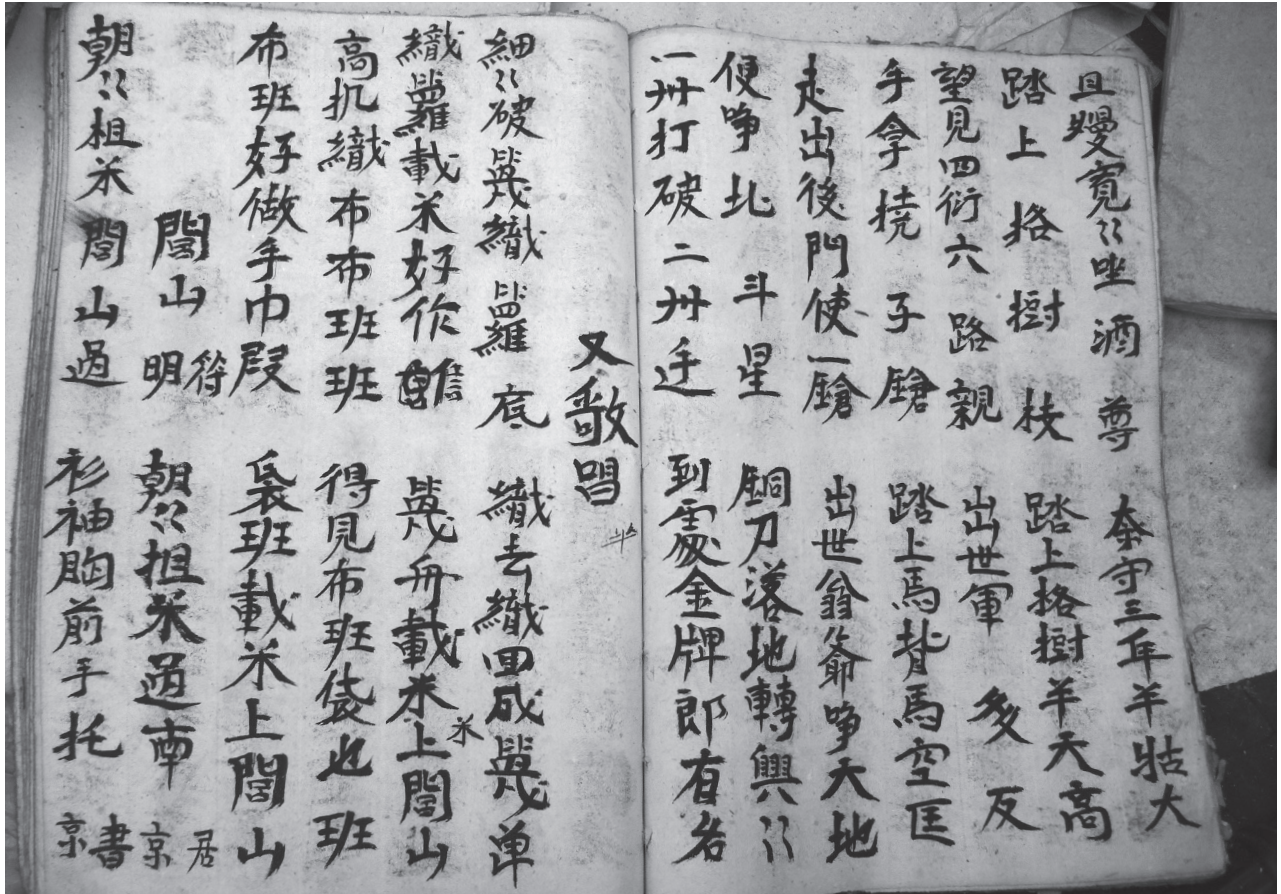 且嫚寬〻唑酒尊 奈守三年羊牯大
踏上挌樹枝 踏上挌樹羊天高
望見四衍六路親 出世軍多反
手拿撓子鎗 踏上馬背馬空匡
走出後門使一鎗 出世翁爺唣天地
便唣北斗星 銅刀落地轉興〻
一卅打破二卅迁 到處金牌郎有名
又歌唱
細〻破篾織籮底 織去織回成篾单
織籮載米好作 篾舟載米上閭山
高扤織布布班班 得見布班袋也班
布班好做手巾段 袋班載米上閭山
閭山明符 朝〻担米過南京居
朝〻担米閭山過 衫袖胸前手托京書